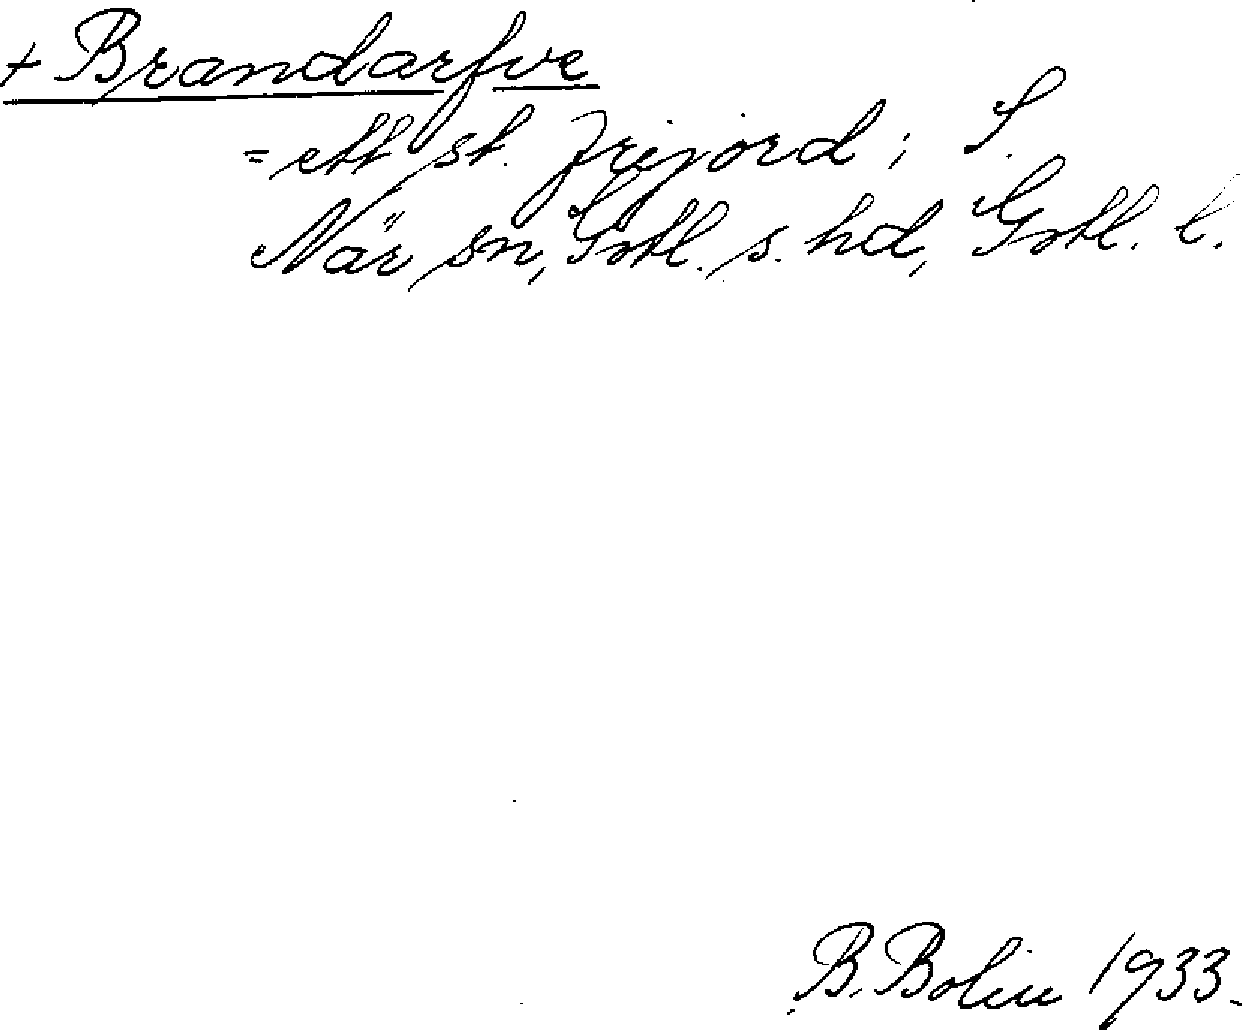 + Brandarfve
= ett st. frijord; S.
När sn, Gotl. s. hd, Gotl. l.
B. Bolin 1933.